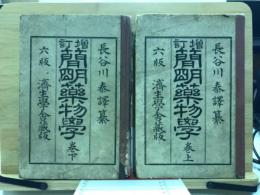 長谷川泰譯纂
增訂
簡明藥物學
卷上
六版 濟生學舍藏版
長谷川泰譯纂
增訂
簡明藥物學
卷下
六版 濟生學舍藏版